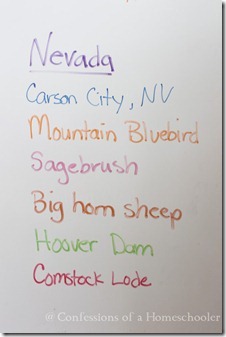 Nevada
Carson City, NV
Mountain Bluebird
Sagebrush
Big horn sheep
Hoover Dam
Comstock Lode
@ Confessions of a Homeschooler